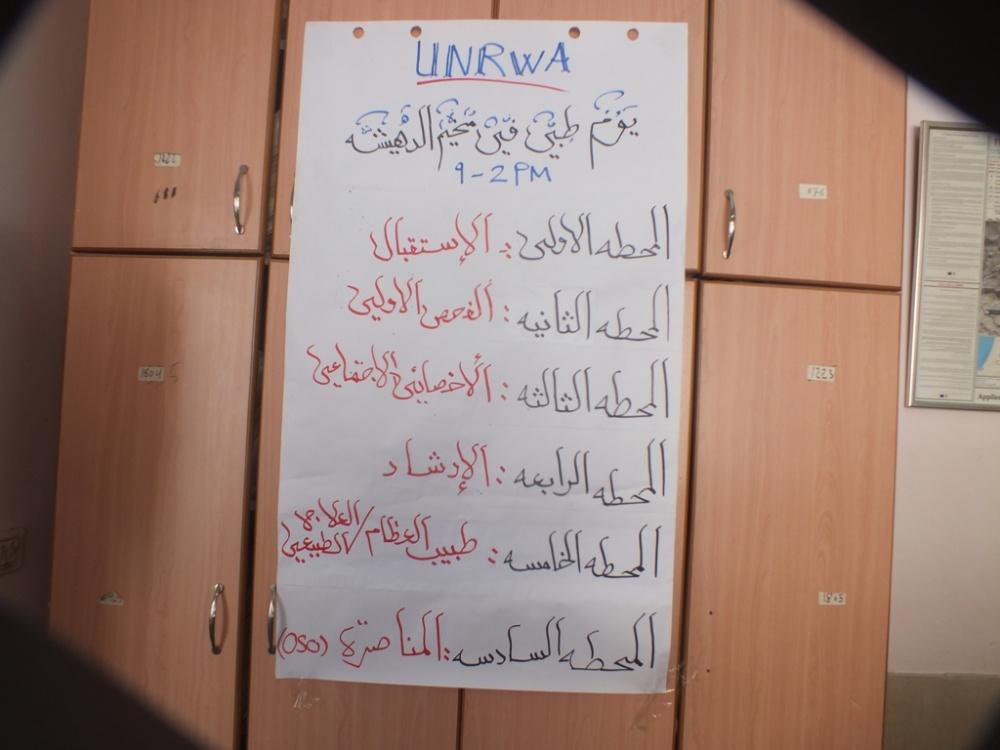 UNRWA
يَوْمُ طِبِّيّ فيْ مُخَيَّمِ الدهيشَه
9-2PM
المحطه الاولى: الإستقبال
المحطه الثانيه: الفحص الاولي
المحطه الثالثه: ألاخصائي الاجتماعي
المحطه الرابعه: الإرشاد
المحطه الخامسه: طبيب العظام/العلاج الطبيعي
المحطه السادسه: المناصرة (OSO)
1223